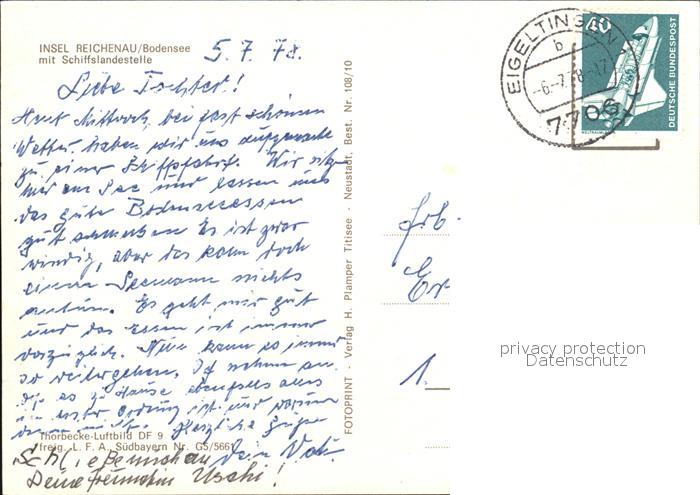 INSEL REICHENAU/Bodensee
mit Schiffslandestelle
5.7.78.
Liebe Tochter!
Heut Mittwoch, bei fast schönem
Wetter haben wir uns aufgemacht
zu einer Schiffsfahrt. Wir sitzen
hier am See und lassen uns
das gute Bodenseeessen
gut schmecken. Es ist zwar
windig, aber das kann doch
einen Seemann nichts
antun. Es geht mir gut
und das Essen ist immer
vorzüglich. Nun kann es immer
so weitergehen. Ich nehme an
daß es zu Hause ebenfalls alles
in bester Ordnung ist und warum
denn nicht. Herzliche Grüße
Dein Vati.
Thorbecke-Luftbild DF 9
freig. L. F. A. Südbayern Nr. G5/5661
Deine Freundin Uschi!
FOTOPRINT · Verlag H. Plamper Titisee · Neustadt, Best. Nr. 108/10
EIGELTINGEN
b
-6.-7.78-17
7706
40
DEUTSCHE BUNDESPOST
WELTRAUMLABOR
Frl.
Er
1.
privacy protection
Datenschutz